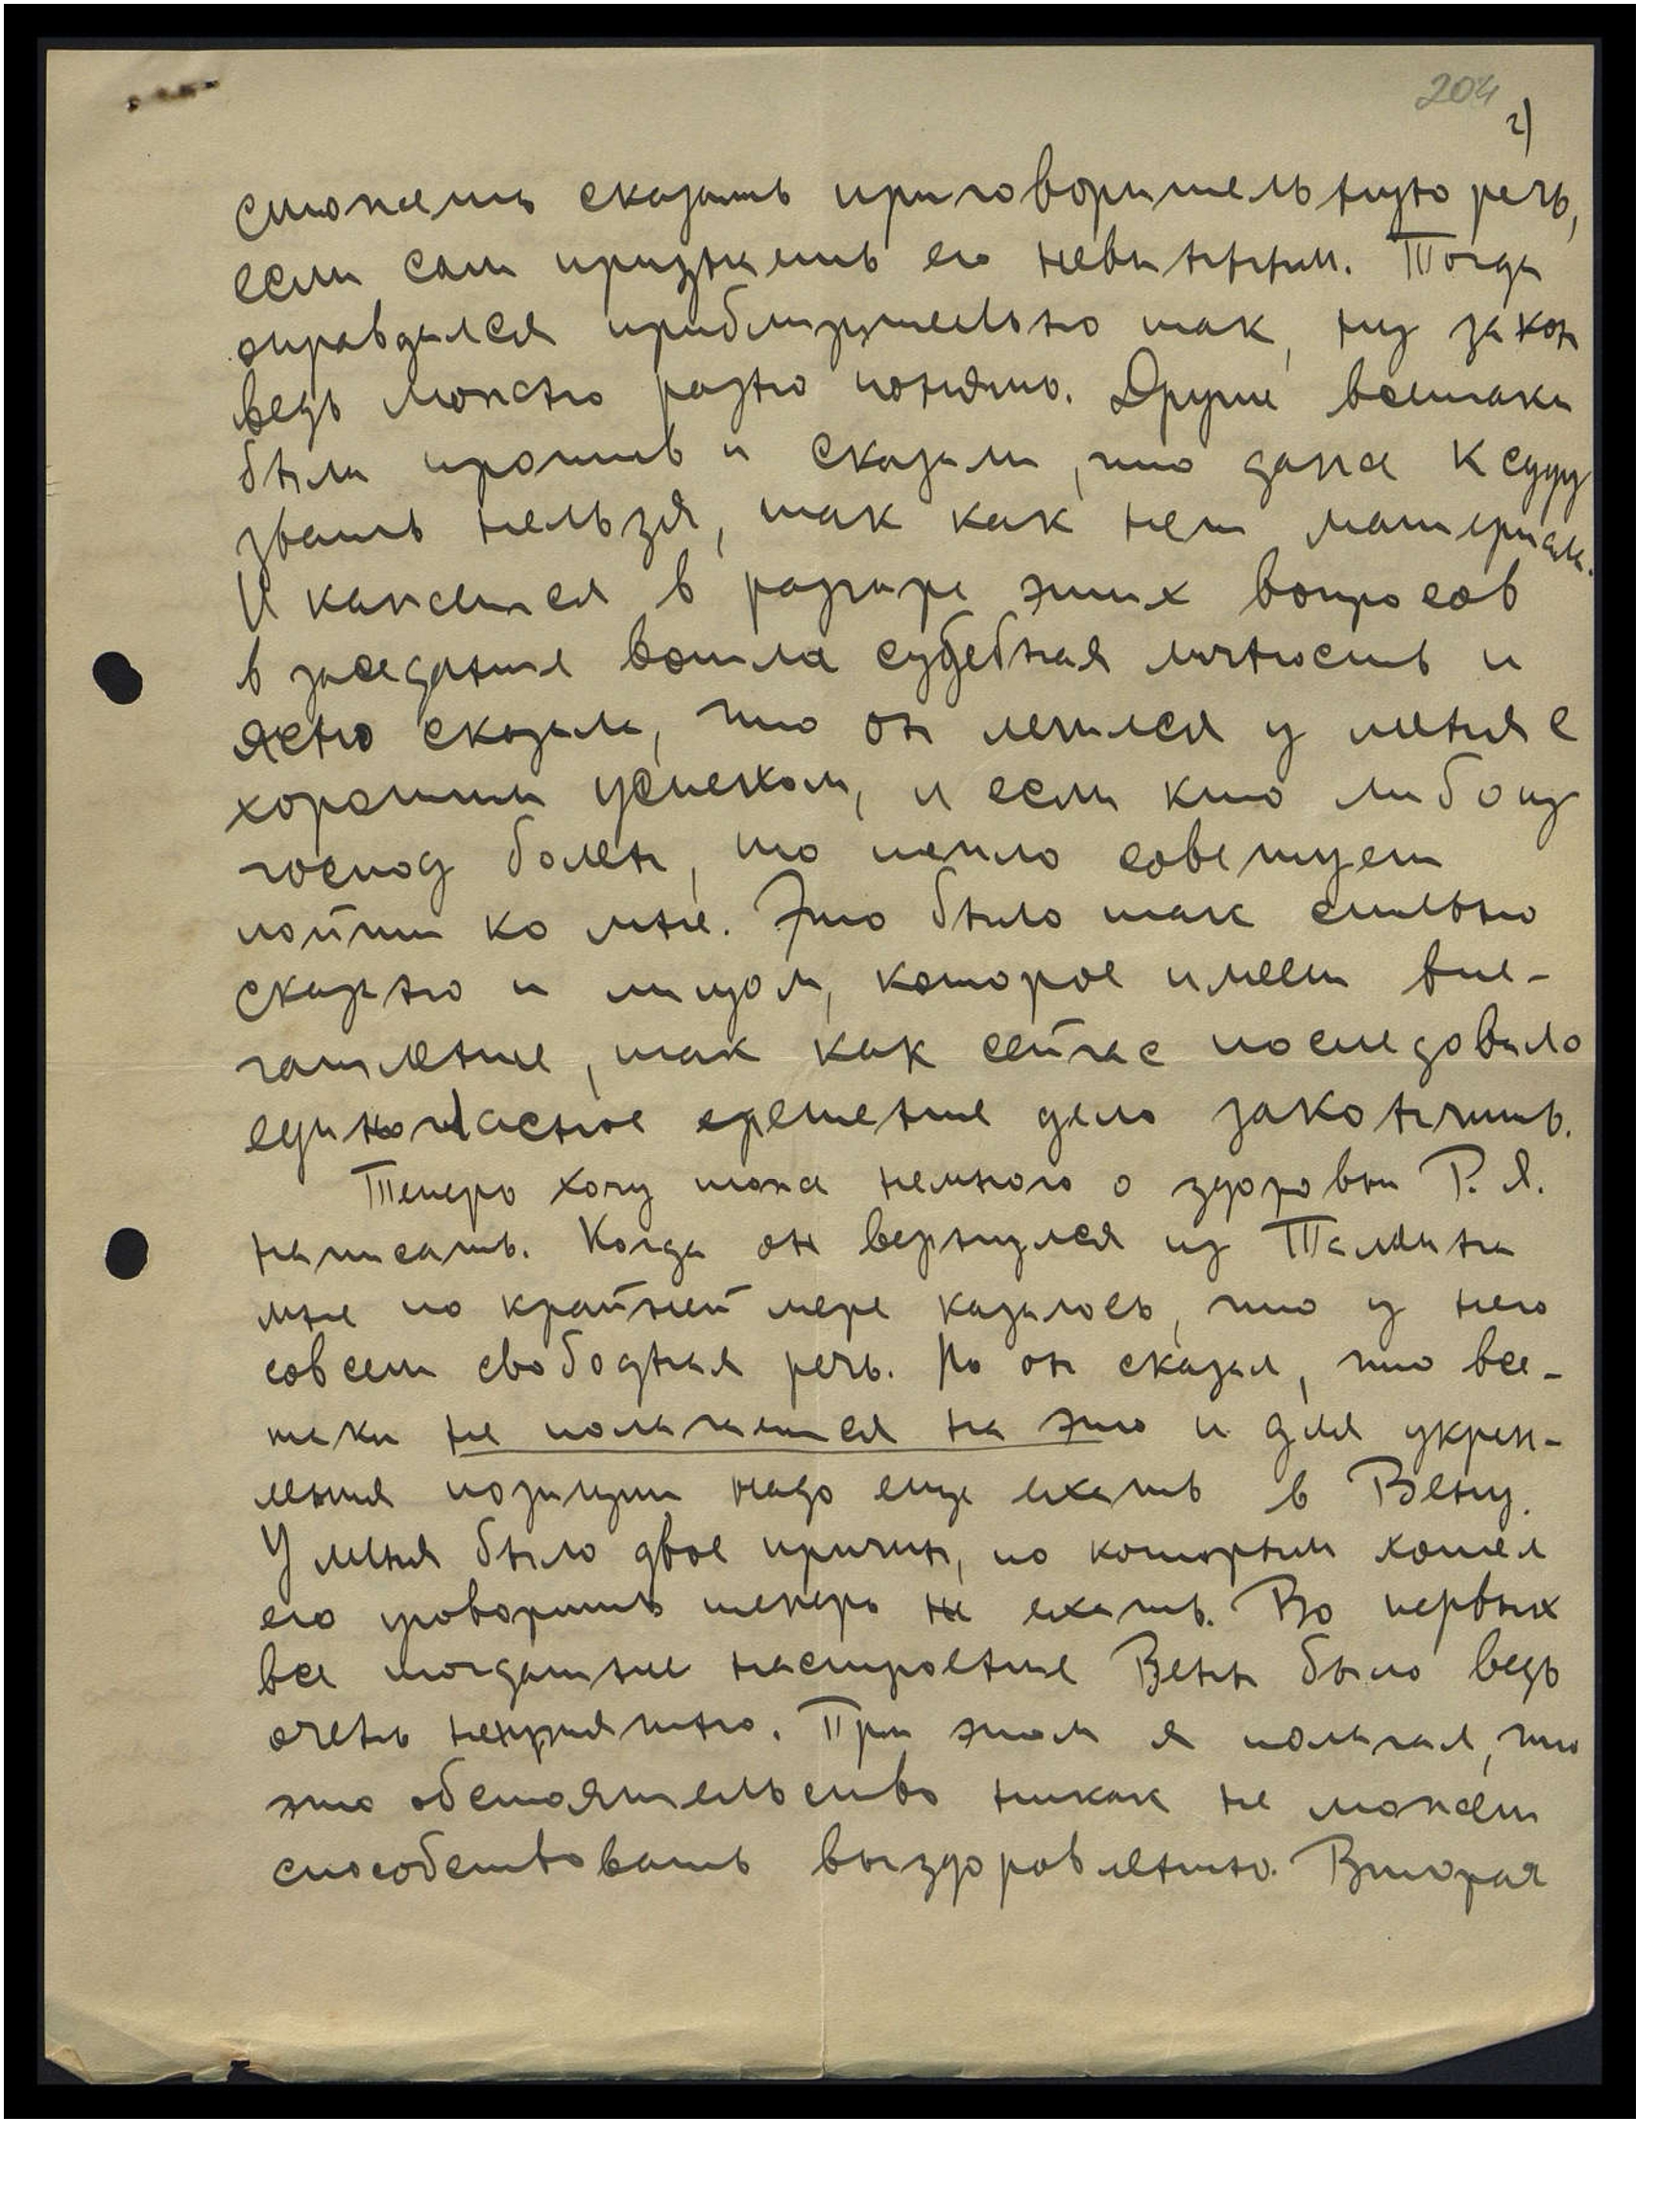 204
2)
сможешь сказать приговорительную речь,
если сам признаешь его невинным. Тогда
оправдался приблизительно так, ну закон
ведь можно разно понять. Другие всетаки
были против и сказали, что даже к суду
звать нельзя, так как нет материала.
И кажется в разгаре этих вопросов
в заседание вошла судебная личность и
ясно сказала, что он лечился у меня с
хорошим успехом, и если кто либо из
господ болен, то тепло советует
пойти ко мне. Это было так сильно
сказано и лицом, которое имеет впе-
чатление, так как сейчас последовало
единогласное решение дело закончить.
Теперь хочу тоже немного о здоровьи Р. Я.
написать. Когда он вернулся из Таллина
мне по крайней мере казалось, что у него
совсем свободная речь. Но он сказал, что все-
таки не полагается на это и для укреп-
ления позиции надо еще ехать в Вену.
У меня было двое причин, по которым хотел
его уговорить теперь не ехать. Во первых
все тогдашнее настроение Вены было ведь
очень неприятно. При этом я полагал, что
это обстоятельство никак не может
способствовать выздоровлению. Вторая